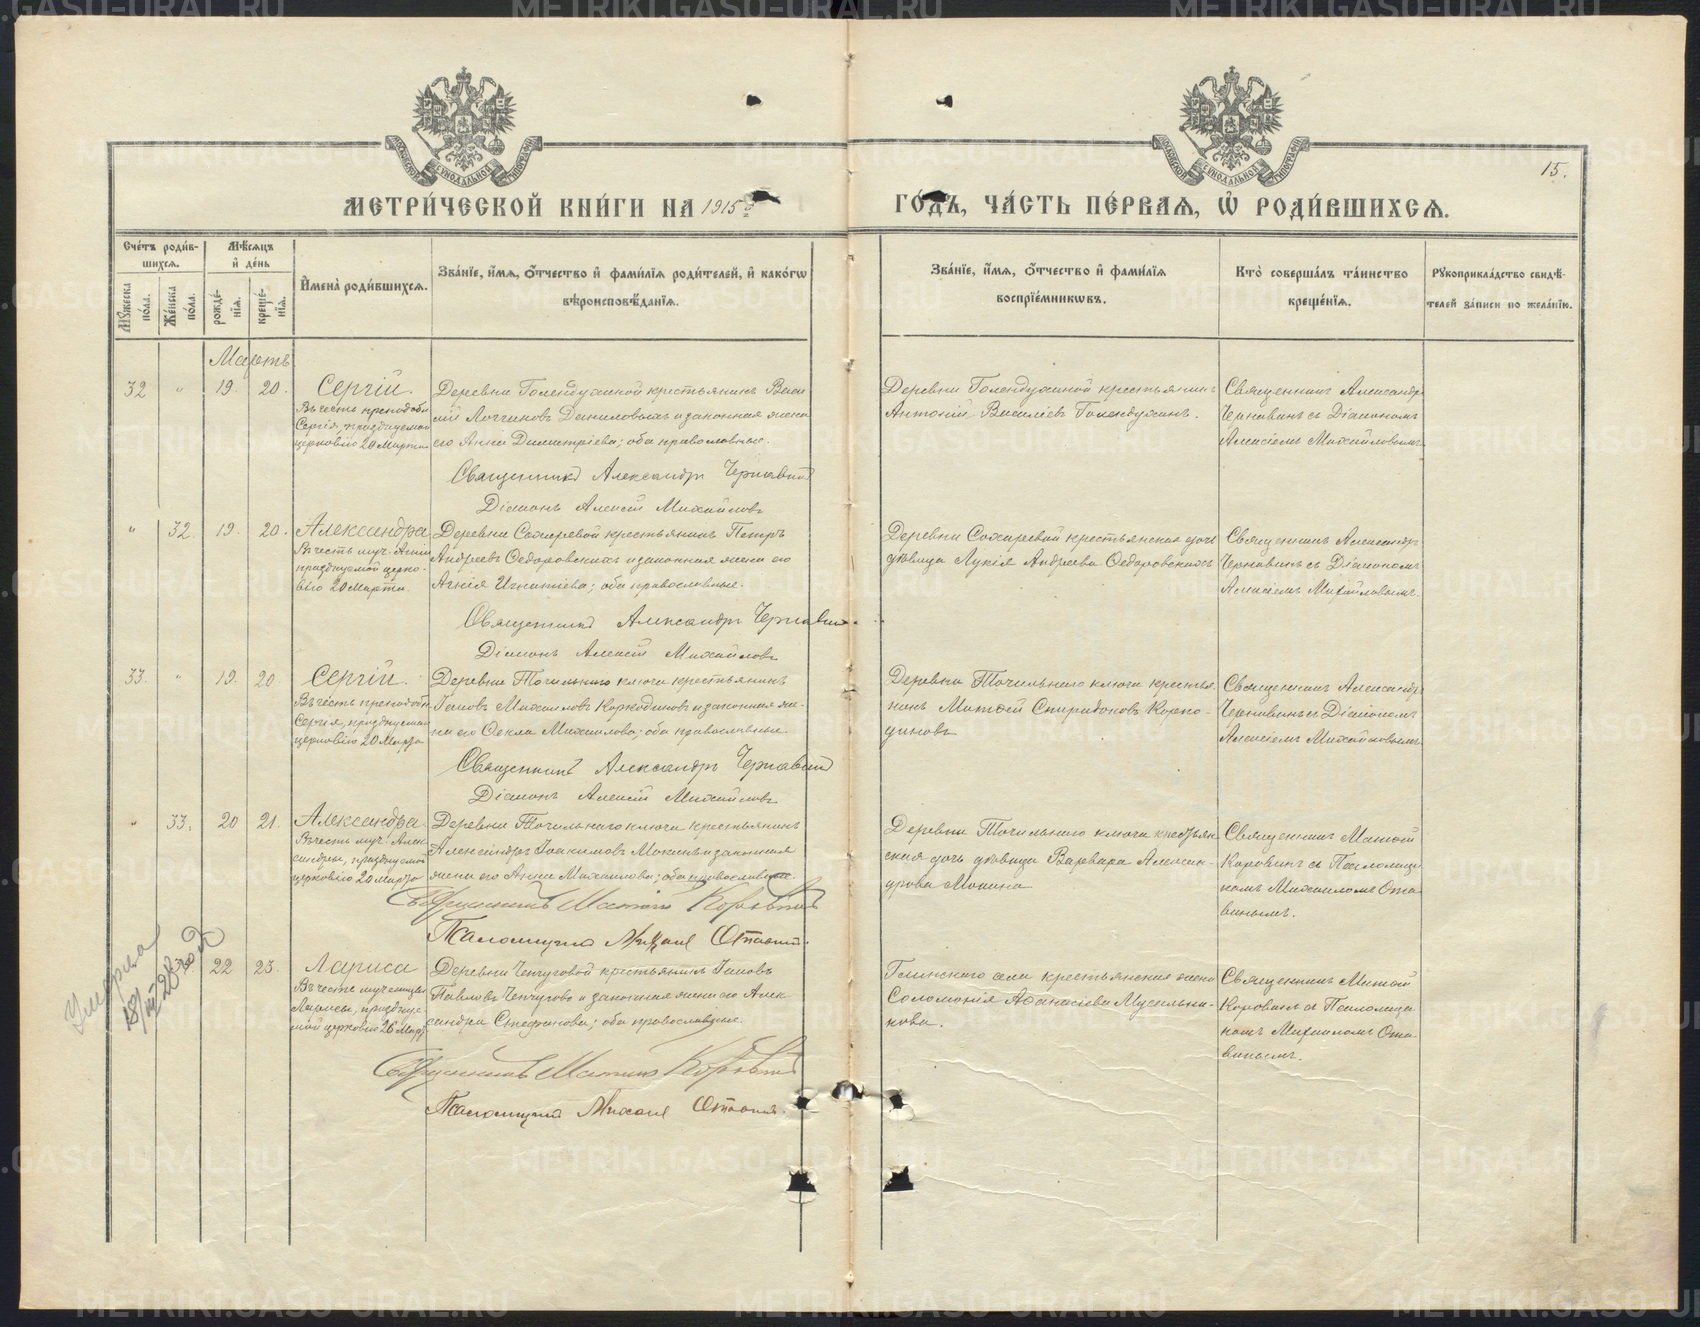 15.
МЕТРИ́ЧЕСКОЙ КНИ́ГИ НА 1915 ГО́ДЪ, ЧА́СТЬ ПЕ́РВАЯ, Ѽ РОДИ́ВШИХСЯ.
Сче́тъ роди́вшихся.
Му́жеска по́ла.
Же́нска по́ла.
Мѣ́сяцъ и де́нь
рожде́нїя.
креще́нїя.
И҆мена̀ роди́вшихся.
Зва́нїе, и҆́мя, ѻ҆́тчество и҆ фами́лїя роди́телей, и҆ како́гѡ вѣроисповѣ́данїя.
Зва́нїе, и҆́мя, ѻ҆́тчество и҆ фами́лїя воспрїе́мникѡвъ.
Кто̀ соверша́лъ та́инство креще́нїя.
Рꙋкоприкла́дство свидѣ́телей за́писи по жела́нїю.
Мартъ
32 " 19. 20.
Сергій.
Въ честь преподобн.
Сергія, празднуемой
церковію 20 Марта
Деревни Голендухиной крестьянинъ Васи
лій Логгиновъ Даниловыхъ и законная жена
его Анна Димитріева; оба православные.
Священникъ Александръ Чернавинъ
Діаконъ Алексій Михайловъ
Деревни Голендухиной крестьянинъ
Антоній Василіевъ Голендухинъ.
Священникъ Александръ
Чернавинъ съ Діакономъ
Алексіемъ Михайловымъ.
" 32. 19. 20.
Александра
Въ честь муч.
празднуемой церко-
вію 20 Марта.
Деревни Сохаревой крестьянинъ Петръ
Андреевъ Ѳедоровскихъ и законная жена его
Агнія Игнатіева; оба православные.
Священникъ Александръ Чернавинъ
Діаконъ Алексій Михайловъ
Деревни Сохаревой крестьянская дочь
дѣвица Лукія Андреева Ѳедоровскихъ
Священникъ Александръ
Чернавинъ съ Діакономъ
Алексіемъ Михайловымъ.
33. " 19. 20
Сергій.
Въ честь преподобн.
Сергія, празднуемой
церковію 20 Марта
Деревни Точильнаго ключа крестьянинъ
Іаковъ Михаиловъ Коркодиновъ и законная же-
на его Ѳекла Михаилова; оба православные.
Священникъ Александръ Чернавинъ
Діаконъ Алексій Михайловъ
Деревни Точильнаго ключа крестья
нинъ Матѳій Спиридоновъ Корко-
диновъ
Священникъ Александръ
Чернавинъ съ Діакономъ
Алексіемъ Михайловымъ.
" 33. 20 21.
Александра
Въ честь муч. Алек-
сандры, празднуемой
церковію 20 Марта
Деревни Точильнаго ключа крестьянинъ
Александръ Іоакимовъ Мокинъ и законная
жена его Анна Михаилова; оба православные.
Священникъ Матѳій Коровинъ
Псаломщикъ Михаилъ
Деревни Точильнаго ключа крестьян
ская дочь дѣвица Варвара Алексан-
дрова Мокина
Священникъ Матѳій
Коровинъ съ Псаломщи
комъ Михаиломъ
22 23.
Лариса
Въ честь мученицы
Ларисы, празднуе
мой церковію 26 Марта
Деревни Чепчуговой крестьянинъ Іаковъ
Павловъ Чепчуговъ и законная жена его Алек
сандра Стефанова; оба православные.
Священникъ Матѳій Коровинъ
Псаломщикъ Михаилъ
Глинскаго села крестьянская жена
Соломонія Аѳанасіева Мусальни-
кова.
Священникъ Матѳій
Коровинъ съ Псаломщи
комъ Михаиломъ
Умерла
METRIKI.GASO-URAL.RU